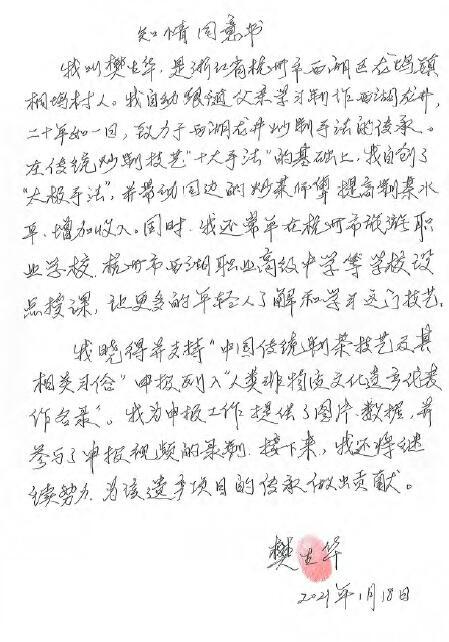 知情同意书
我叫樊生华，是浙江省杭州市西湖区龙坞镇
相坞村人。我自幼跟随父亲学习制作西湖龙井，
二十年如一日，致力于西湖龙井炒制手法的传承。
在传统炒制技艺“十大手法”的基础上，我自创了
“太极手法”，并带动周边的炒茶师傅提高制茶水
平、增加收入。同时，我还常年在杭州市旅游职
业学校、杭州市西湖职业高级中学等学校设
点授课，让更多的年轻人了解和学习这门技艺。
我晓得并支持“中国传统制茶技艺及其
相关习俗”申报列入“人类非物质文化遗产代表
作名录”。我为申报工作提供了图片、数据，并
参与了申报视频的录制。接下来，我还将继
续努力，为该遗产项目的传承做出贡献。
樊生华
2021年1月18日